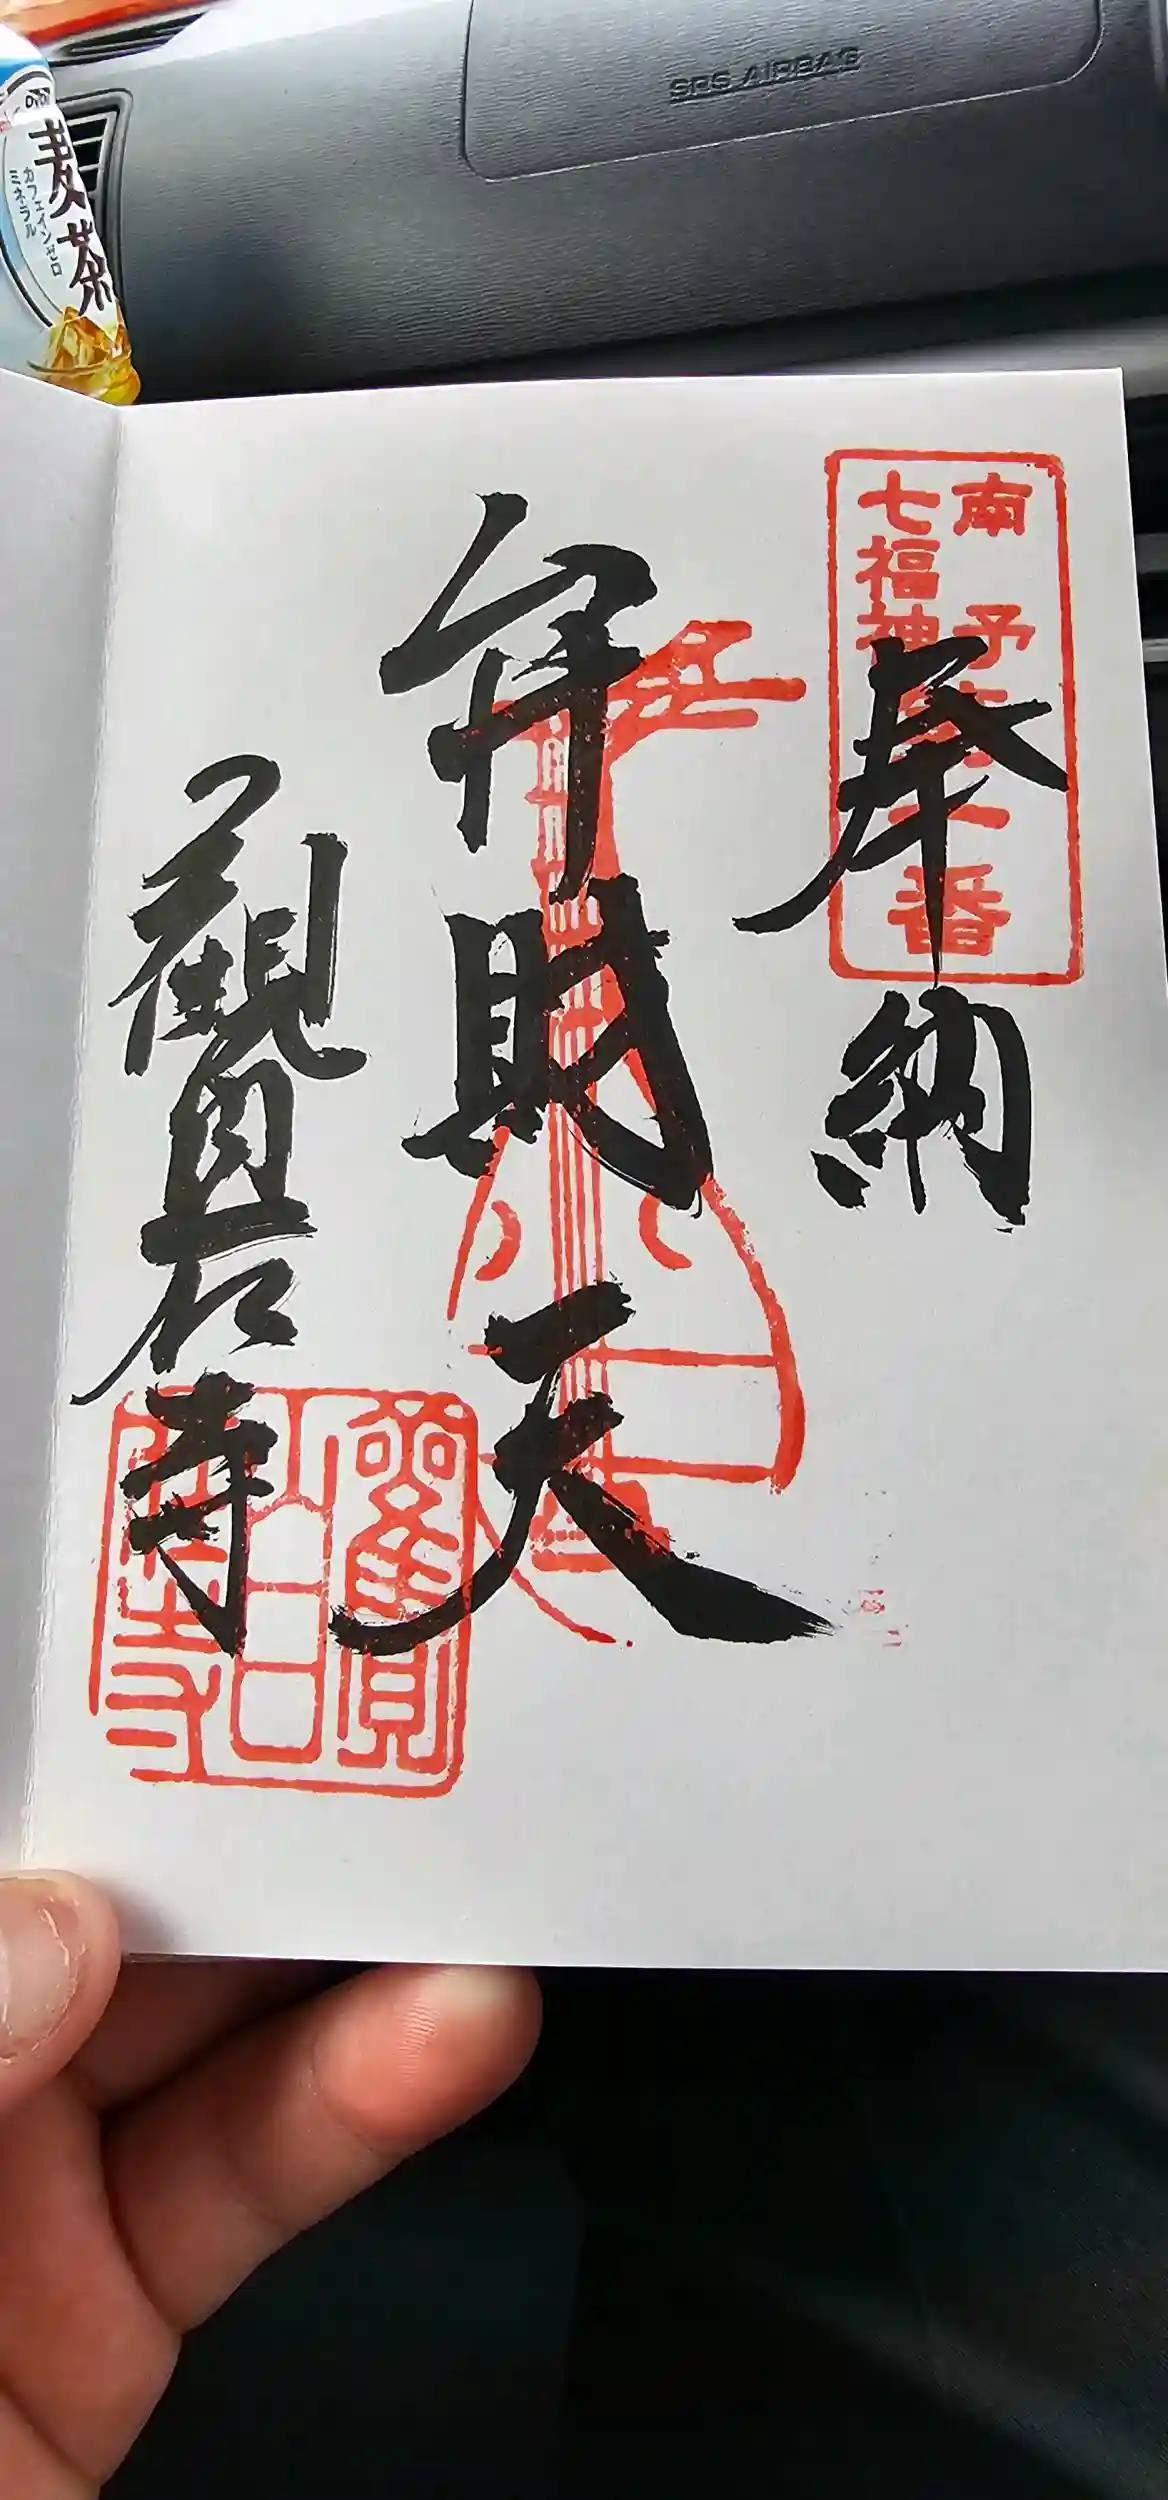 SRS AIRBAG
麦茶
カフェインゼロ
ミネラル
南予
七福神
番
奉納
弁財天
觀自在寺
觀自在寺